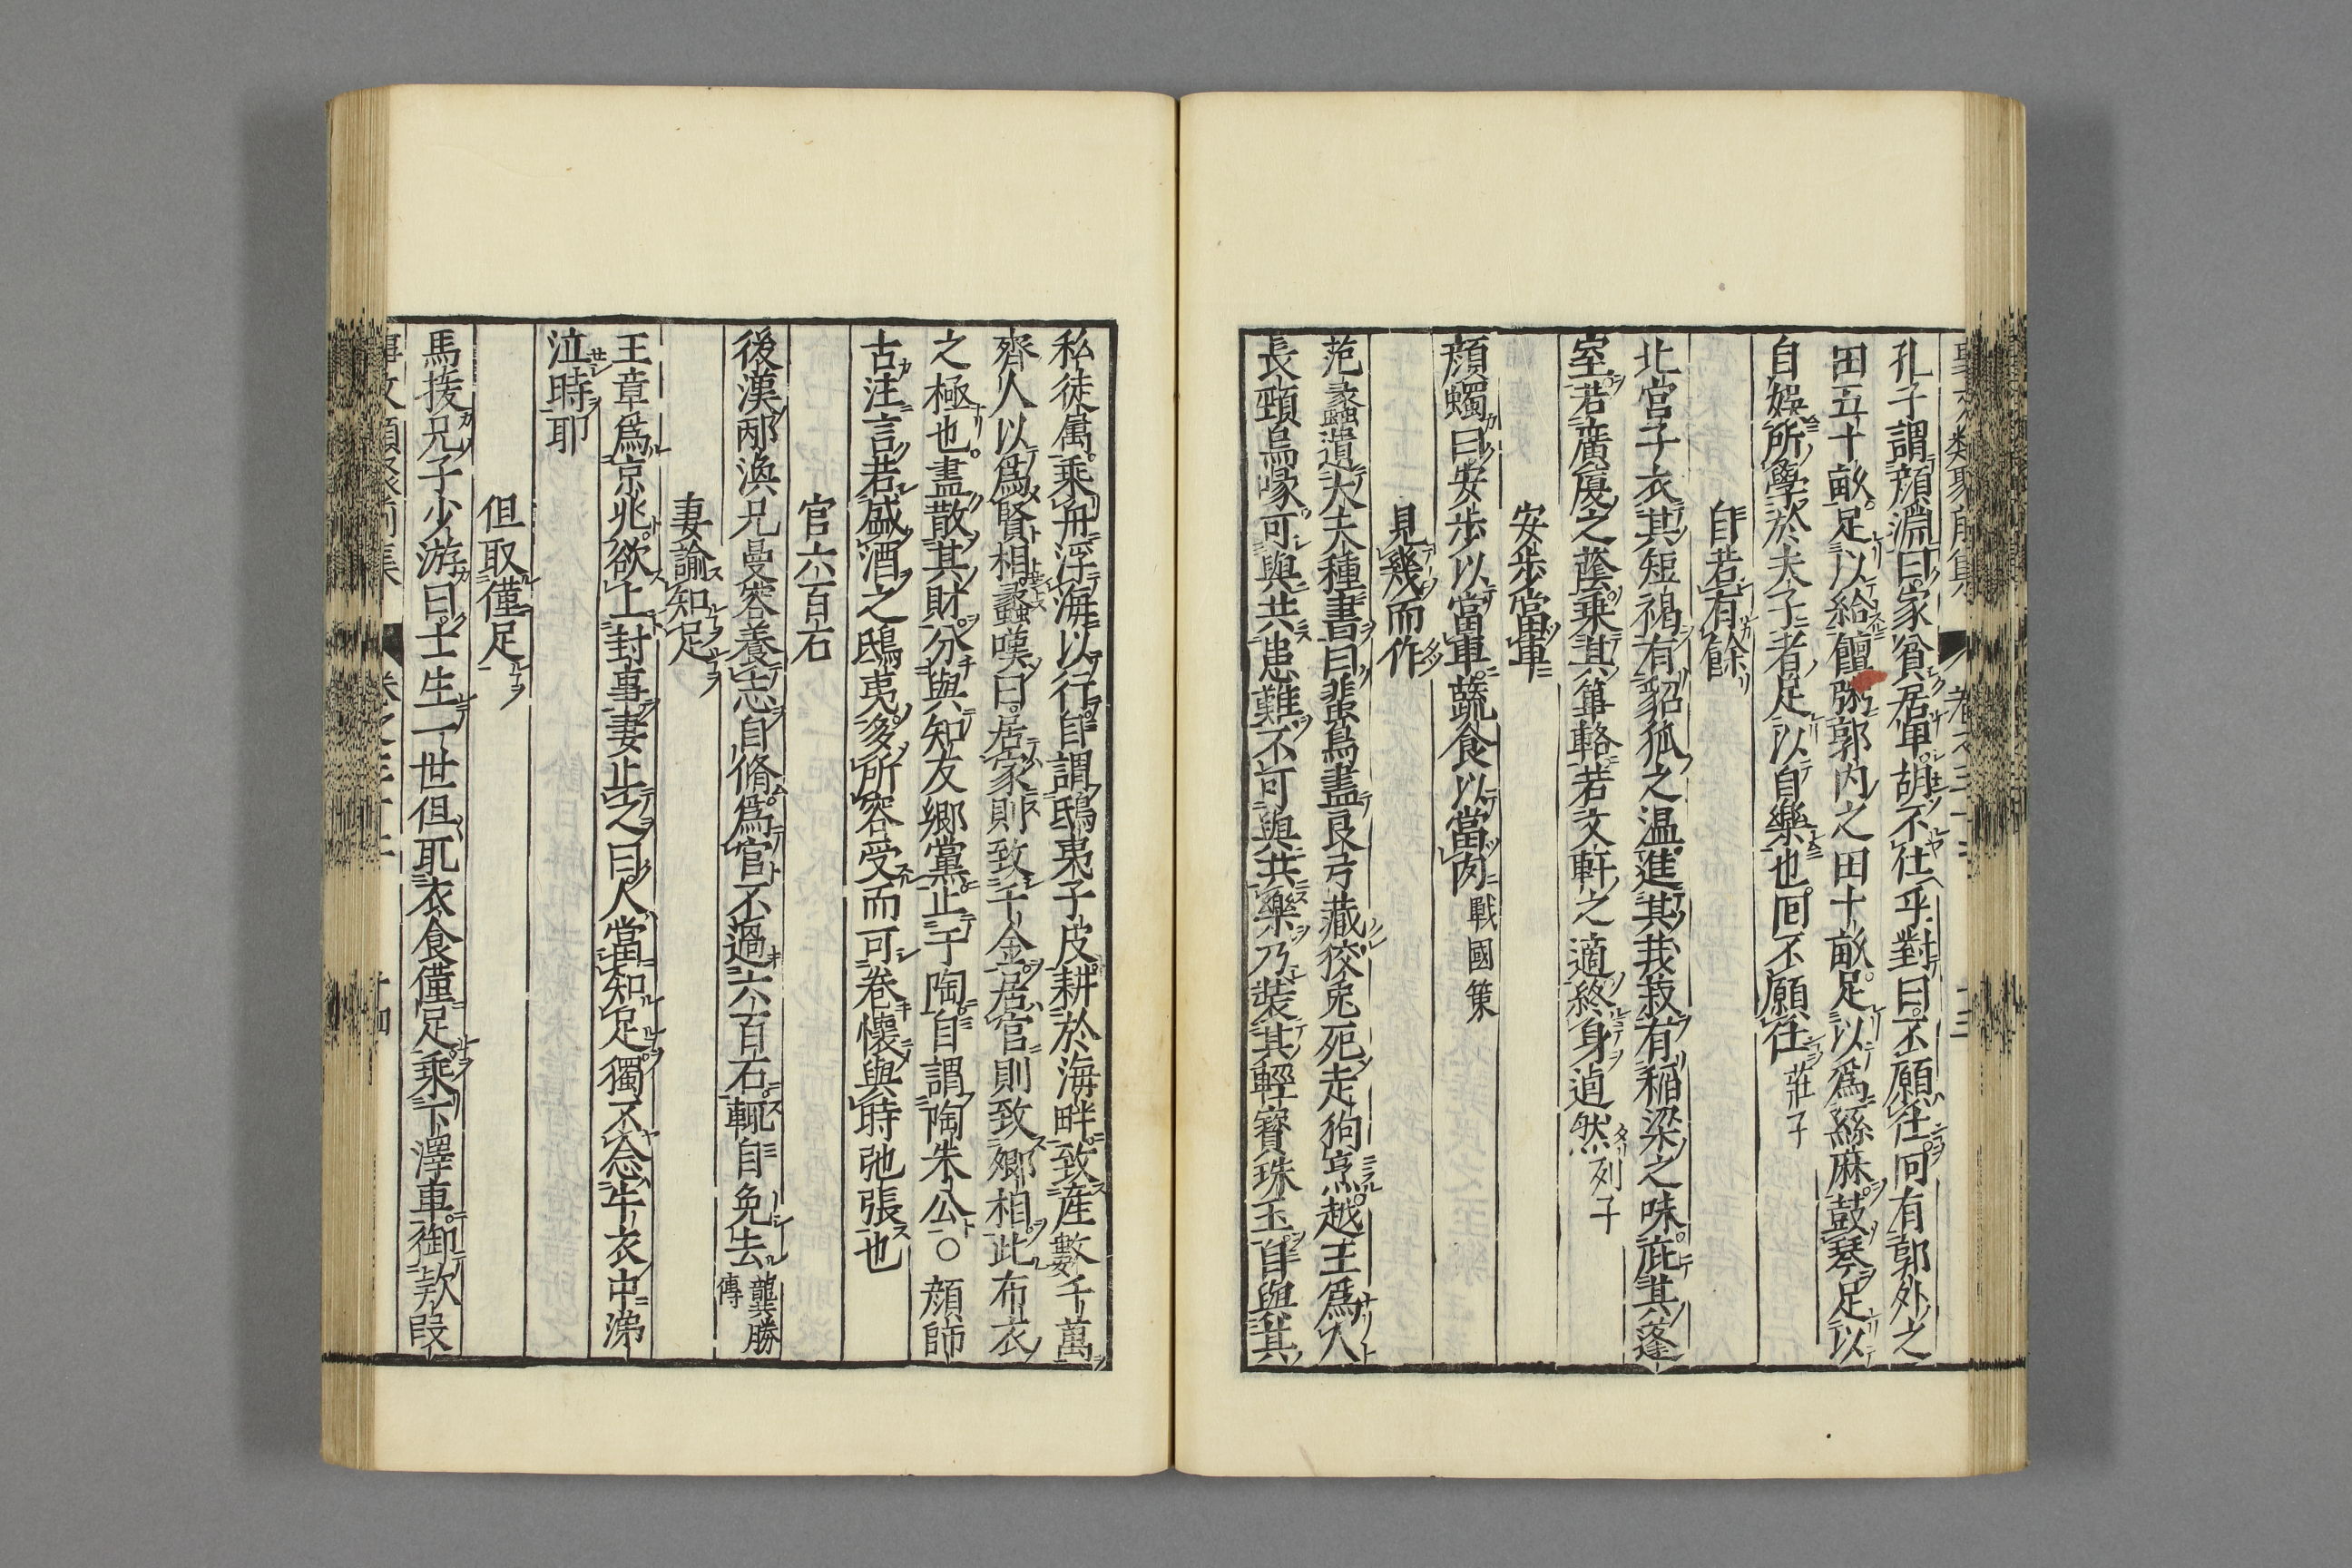 孔子謂顔淵曰家貧居卑胡不仕乎對曰不願仕回有郭外之
田五十畝足以給饘粥郭内之田十畝足以爲絲麻鼓琴足以
自娯所學於夫子者足以自樂也回不願仕莊子
自若有餘
北宮子衣其短褐有貂狐之温進其茙菽有稲梁之味庇其蓬
室若廣廈之蔭乘其篳輅若文軒之適終身逌然列子
安步當車
顔蠋曰安步以當車蔬食以當肉戰國策
見幾而作
范蠡遺大夫種書曰蜚鳥盡良弓藏狡兎死走狗烹越王爲人
長頸鳥喙可與共患難不可與共樂乃裝其輕寳珠玉自與其
私徒属乘舟浮海以行自謂鴟夷子皮耕於海畔致産數千萬
齊人以爲賢相蠡嘆曰居家則致千金居官則致卿相此布衣
之極也盡散其財分與知友鄉黨止于陶自謂陶朱公○顔師
古注言若盛酒之鴟夷多所容受而可卷懷與時弛張也
官六百石
後漢邴漢兄曼容養志自脩爲官不過六百石輒自免去龔勝傳
妻諭知足
王章爲京兆欲上封事妻止之曰人當知足獨不念牛衣中涕
泣時耶
但取僅足
馬援兄子少游曰士生一世但取衣食僅足乘下澤車御款段